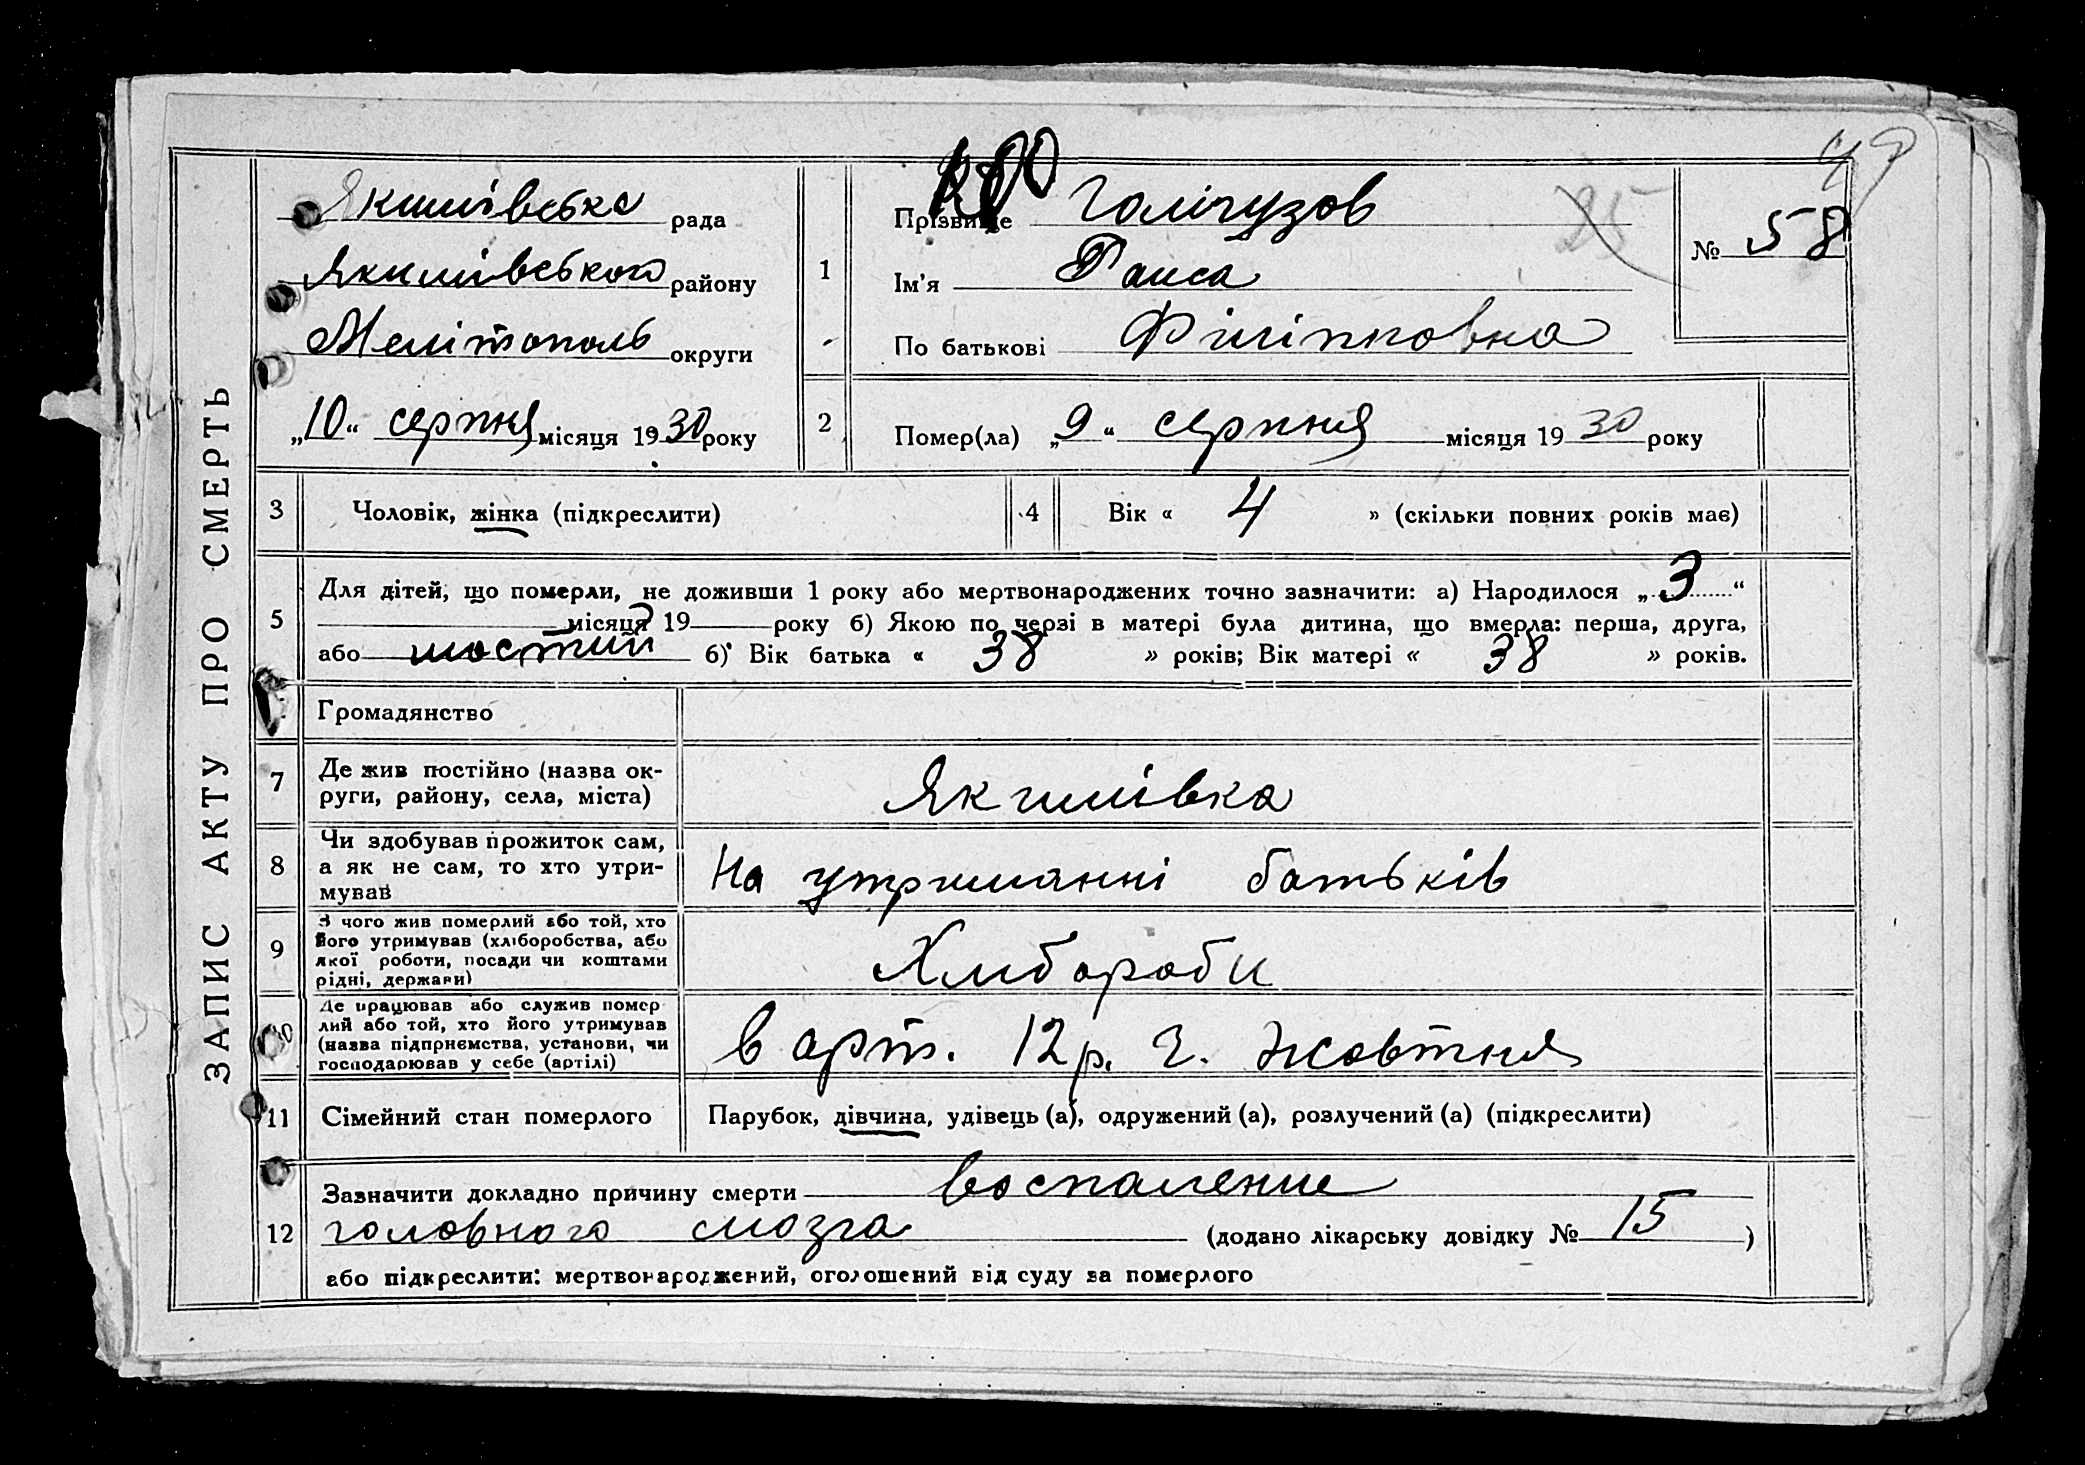 ЗАПИС АКТУ ПРО СМЕРТЬ
49
Якимівська рада
Якимівського району
Мелітополь округи
„10“ серпня місяця 1930 року
1
Прізвище Голігузов
Ім'я Раиса
По батькові Філіпповна
25
№ 58
2
Помер(ла) „9“ серпня місяця 1930 року
3
Чоловік, жінка (підкреслити)
4
Вік « 4 » (скільки повних років має)
5
Для дітей, що померли, не доживши 1 року або мертвонароджених точно зазначити: а) Народилося „3“
місяця 19 року б) Якою по черзі в матері була дитина, що вмерла: перша, друга,
або шостий б) Вік батька « 38 » років; Вік матері « 38 » років.
Громадянство
7
Де жив постійно (назва ок-
руги, району, села, міста)
Якимівка
8
Чи здобував прожиток сам,
а як не сам, то хто утри-
мував
На утриманні батьків
9
З чого жив померлий або той, хто
його утримував (хліборобства, або
якої роботи, посади чи коштами
рідні, держави)
Хлібороби
10
Де працював або служив помер
лий або той, хто його утримував
(назва підприємства, установи, чи
господарював у себе (артілі)
в арт. 12 р. Ч. Жовтня
11
Сімейний стан померлого
Парубок, дівчина, удівець (а), одружений (а), розлучений (а) (підкреслити)
12
Зазначити докладно причину смерти воспаление
головного мозга (додано лікарську довідку № 15)
або підкреслити: мертвонароджений, оголошений від суду за померлого